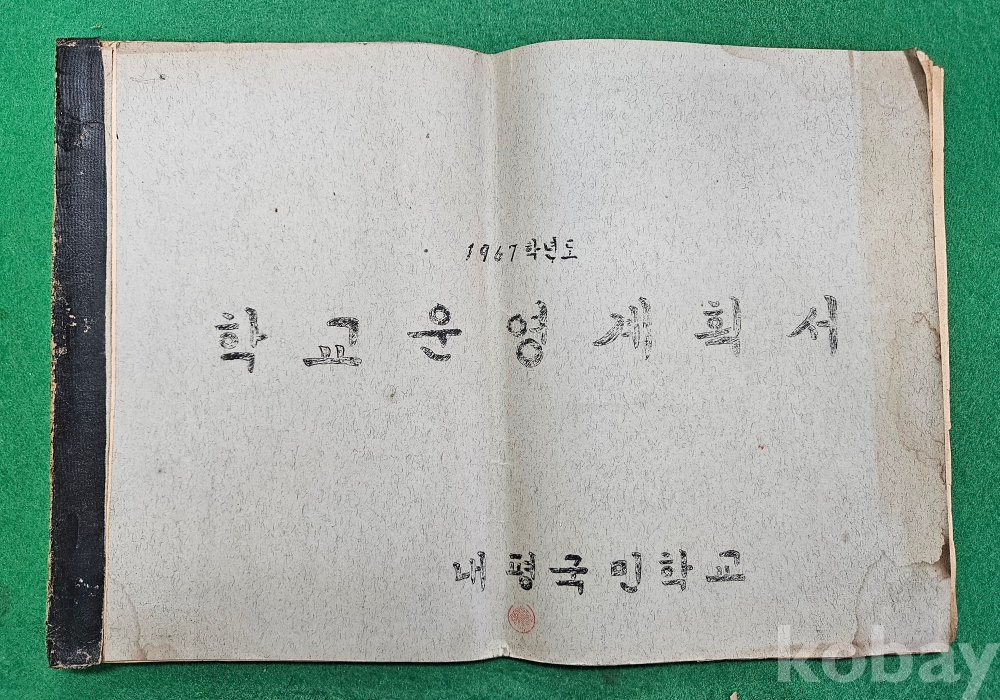 1967학년도
학교운영계획서
내평국민학교
kobay